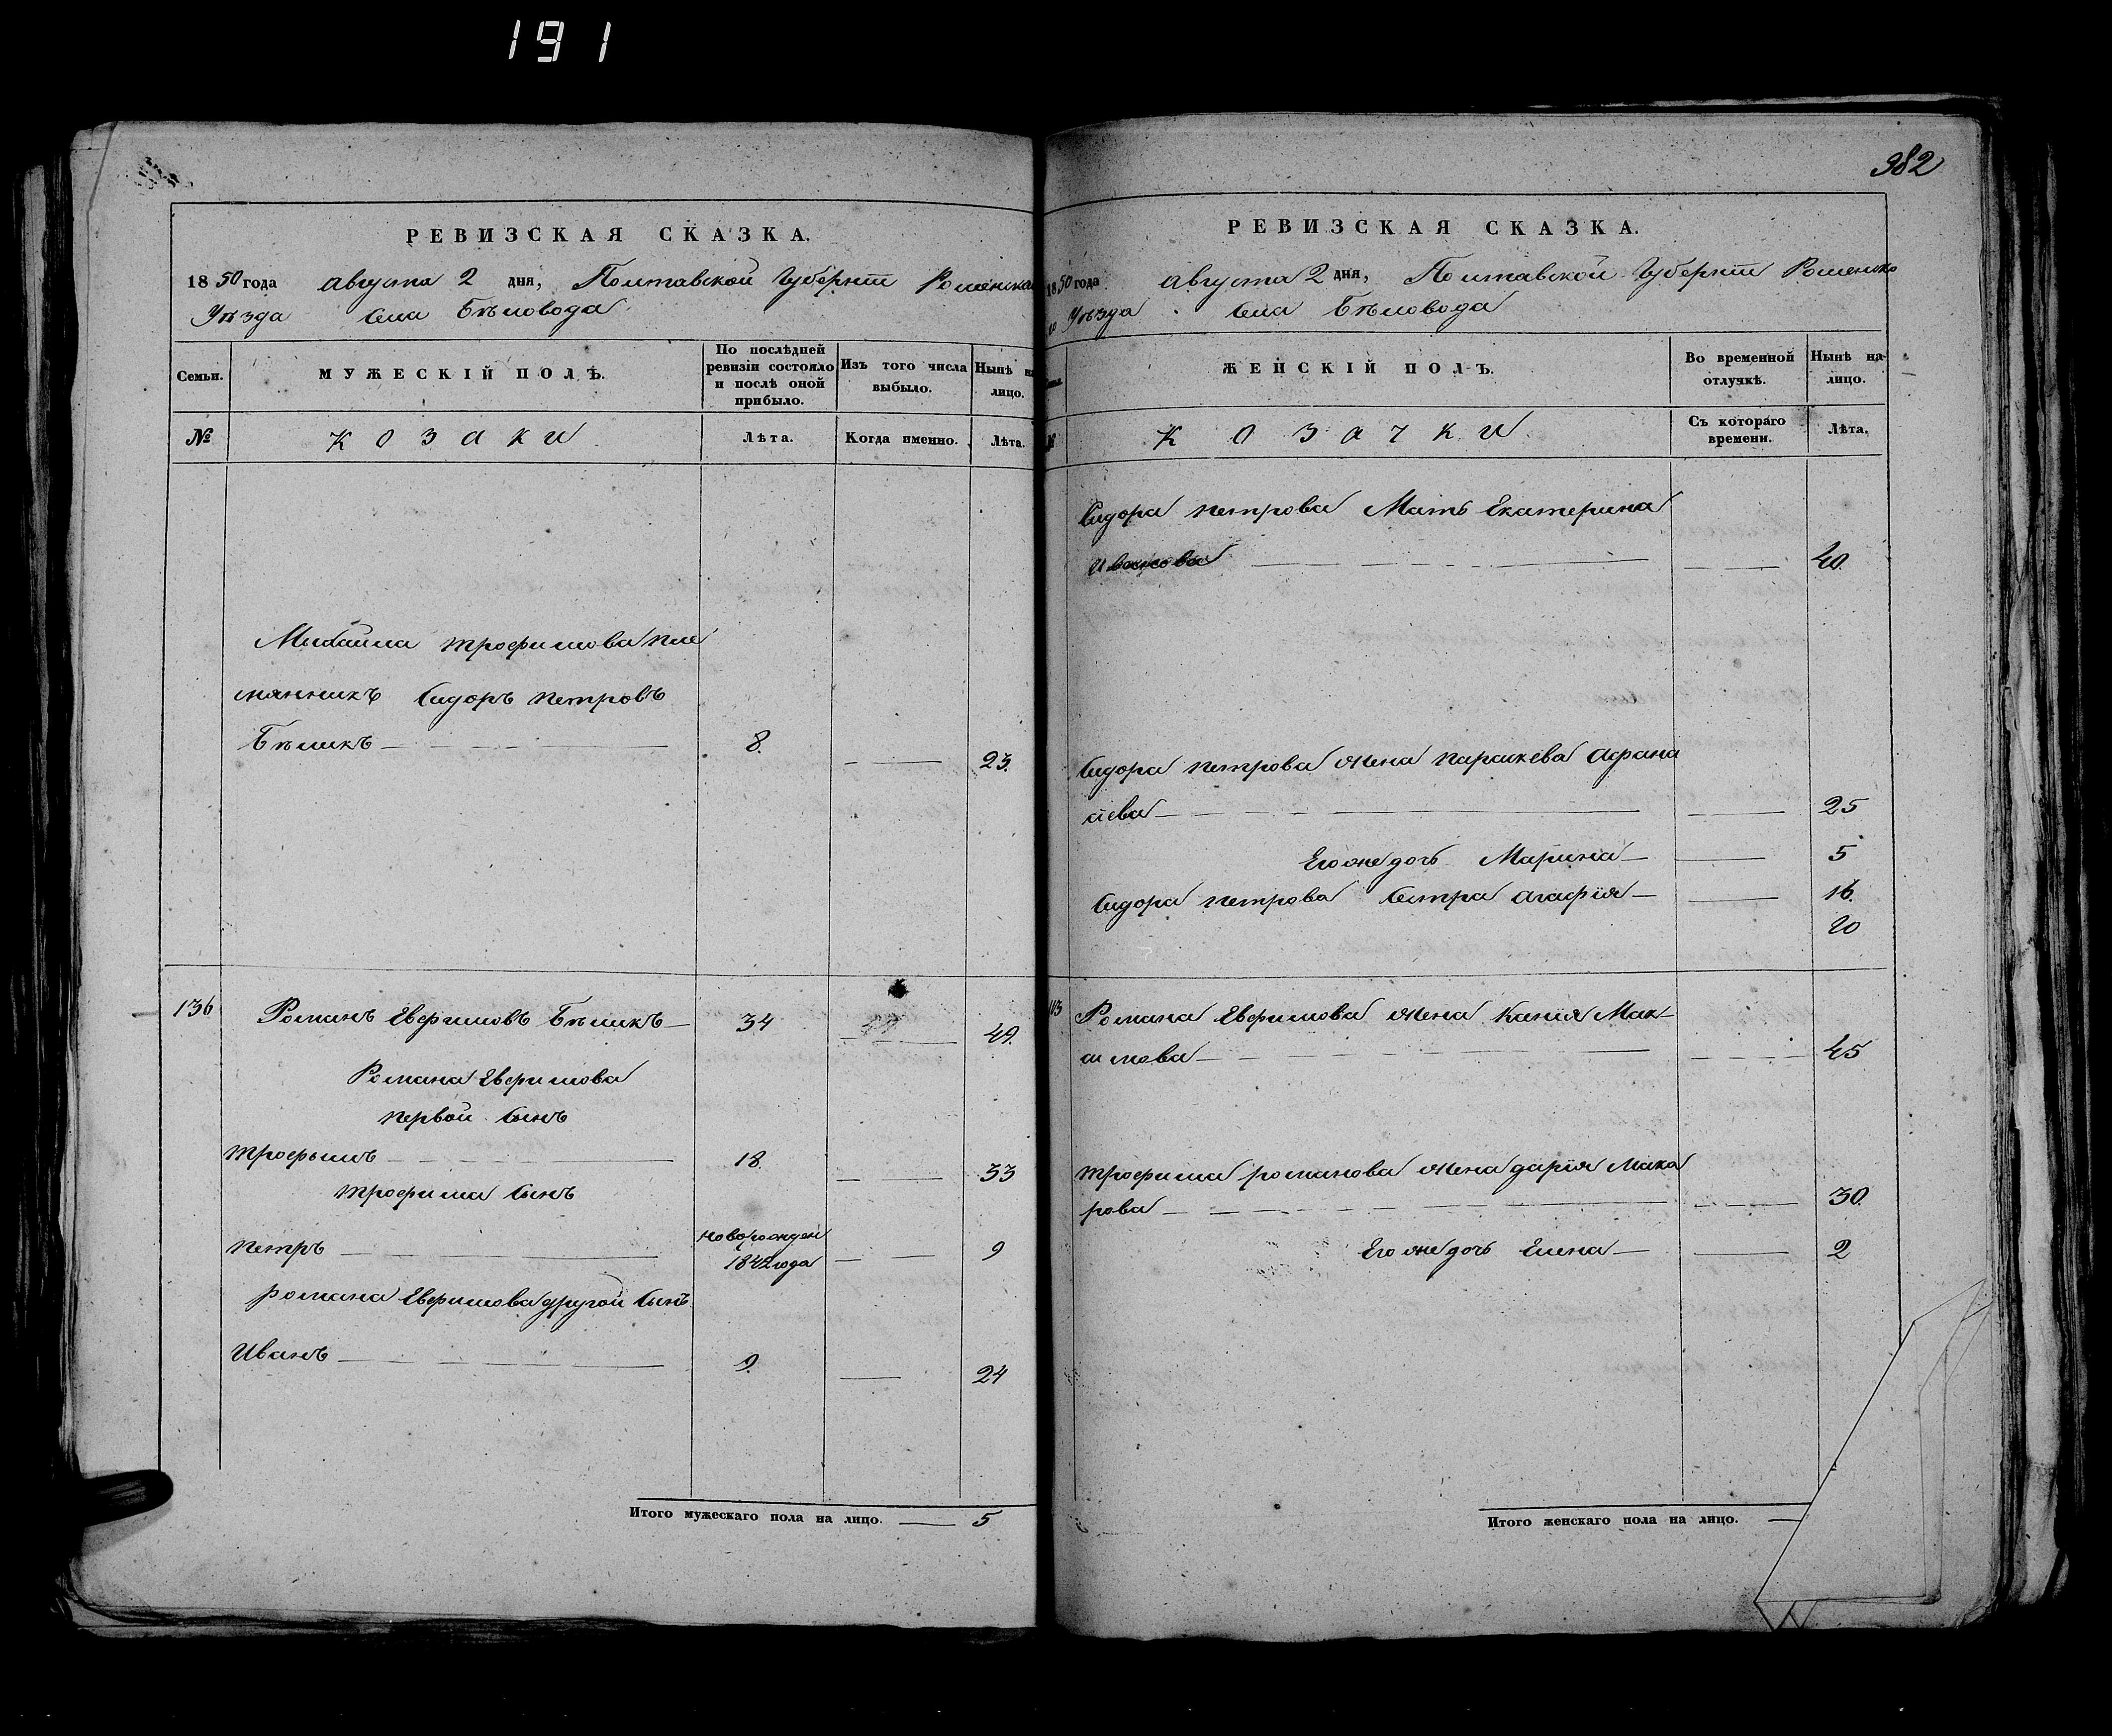 191
РЕВИЗСКАЯ СКАЗКА.
1850 года августа 2 дня, Полтавской Губернiи Роменска
Уѣзда Села Бѣловода
Семьи. МУЖЕСКІЙ ПОЛЪ. По послѣдней ревизіи состояло и послѣ оной прибыло. Изъ того числа выбыло. Нынѣ на лицо.
№ Козаки Лѣта. Когда именно. Лѣта.
Михайла трофимова пле
мянникъ Сидоръ петровъ
Бѣликъ 8. 23.
136 Романъ Евфимовъ Бѣликъ 34 49.
Романа Евфимова
первой Сынъ
трофымъ 18. 33
трофима Сынъ
петръ новорожден 1842 года 9
романа Евфимова другой Сынъ
Иванъ 9. 24
Итого мужескаго пола на лицо. 5
382
РЕВИЗСКАЯ СКАЗКА.
1850 года августа 2 дня, Полтавской Губернiи Роменско
Уѣзда Села Бѣловода
ЖЕНСКІЙ ПОЛЪ. Во временной отлучкѣ. Нынѣ на-лицо.
№ Козачки Съ котораго времени. Лѣта.
Сидора петрова Мать Екатерина
40.
Сидора петрова жена параскева Афана
сiева 25
Его же дочь Марина 5
Сидора петрова Сестра агафiя 16.
20
Романа Евфимова жена Мак-
симова 45
трофима романова жена дарiя Мака
рова 30.
Его же дочь Елена 2
Итого женскаго пола на лицо.